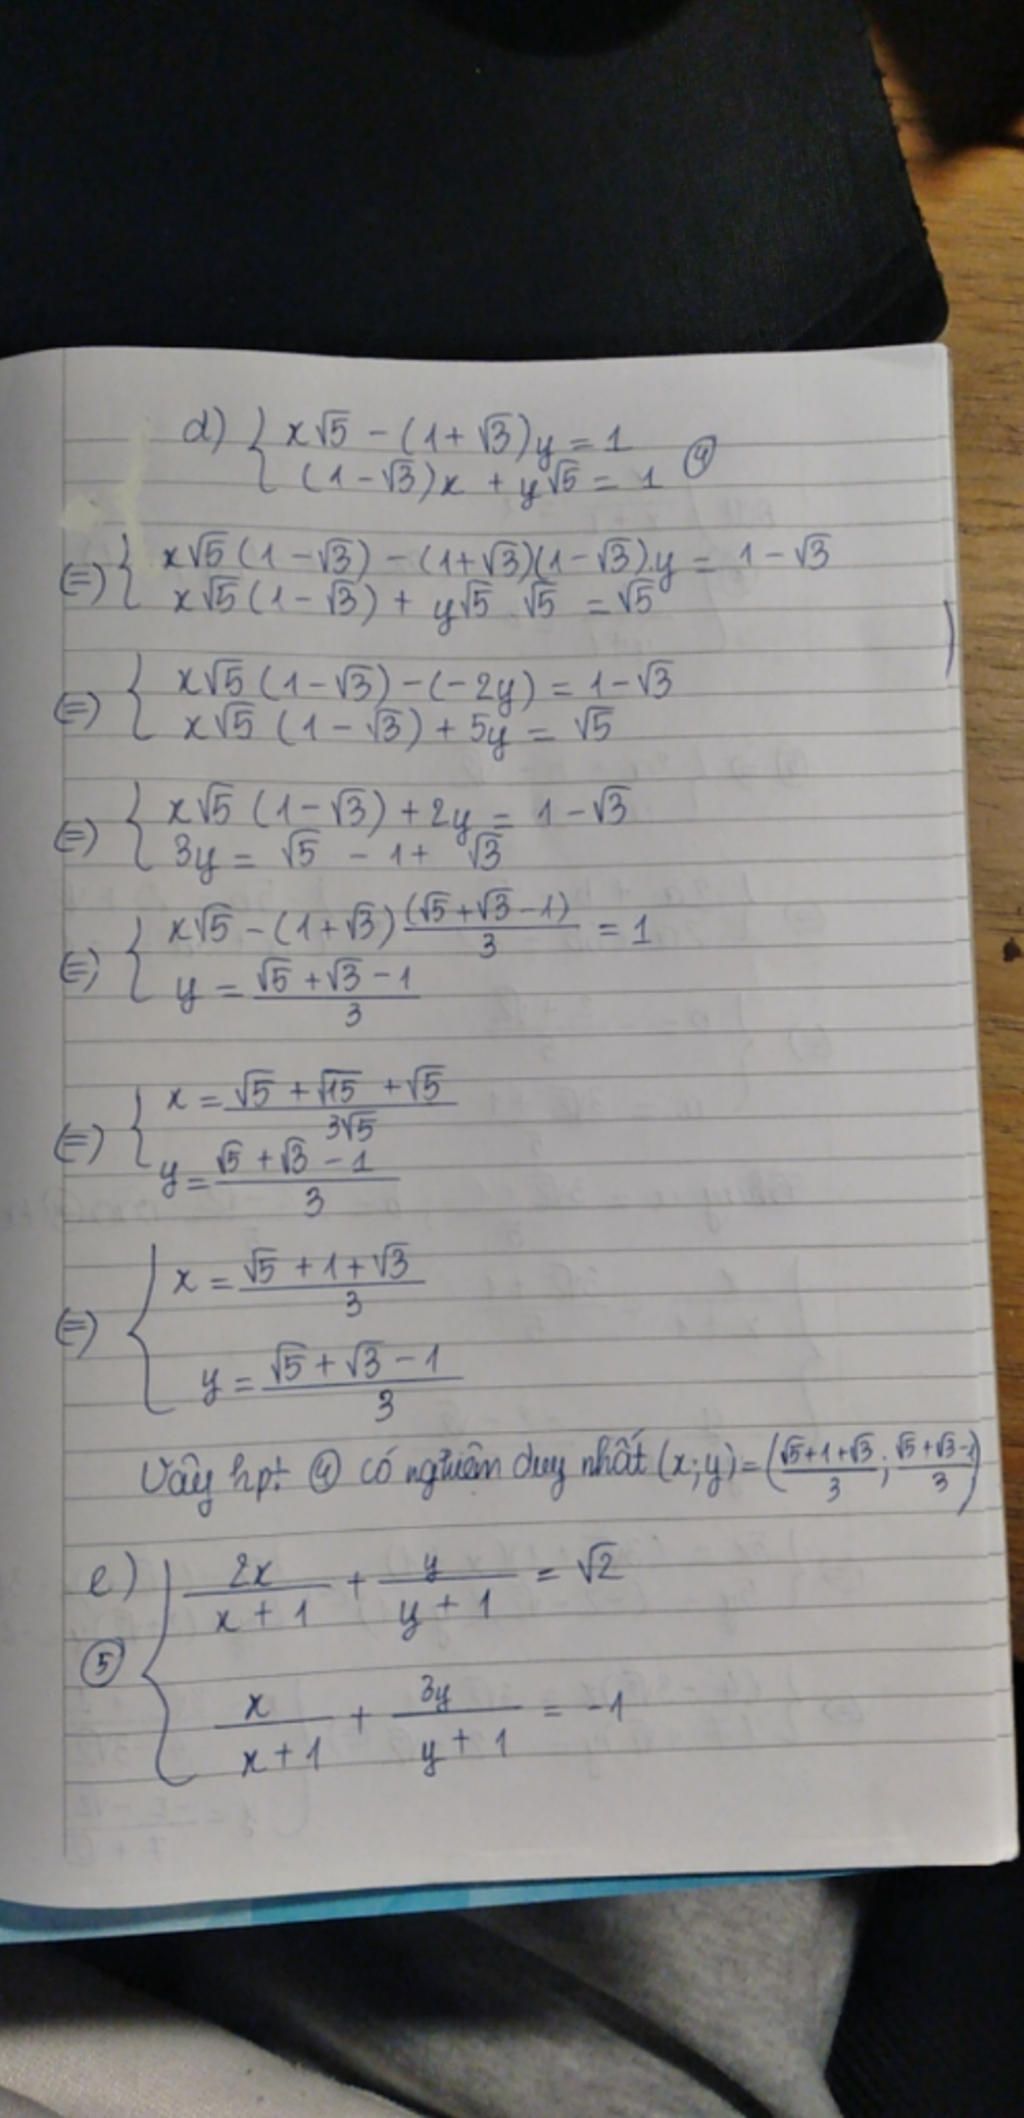 d) { x√5 - (1 + √3)y = 1
(1 - √3)x + y√5 = 1 ④
(=) { x√5 (1 - √3) - (1 + √3)(1 - √3).y = 1 - √3
x√5 (1 - √3) + y√5 . √5 = √5
(=) { x√5 (1 - √3) - (-2y) = 1 - √3
x√5 (1 - √3) + 5y = √5
(=) { x√5 (1 - √3) + 2y = 1 - √3
3y = √5 - 1 + √3
(=) { x√5 - (1 + √3) (√5 + √3 - 1)/3 = 1
y = (√5 + √3 - 1)/3
(=) { x = (√5 + √15 + √5)/3√5
y = (√5 + √3 - 1)/3
(=) { x = (√5 + 1 + √3)/3
y = (√5 + √3 - 1)/3
Vậy hpt ④ có nghiệm duy nhất (x; y) = ((√5 + 1 + √3)/3; (√5 + √3 - 1)/3)
e) { 2x/(x + 1) + y/(y + 1) = √2
⑤
x/(x + 1) + 3y/(y + 1) = -1